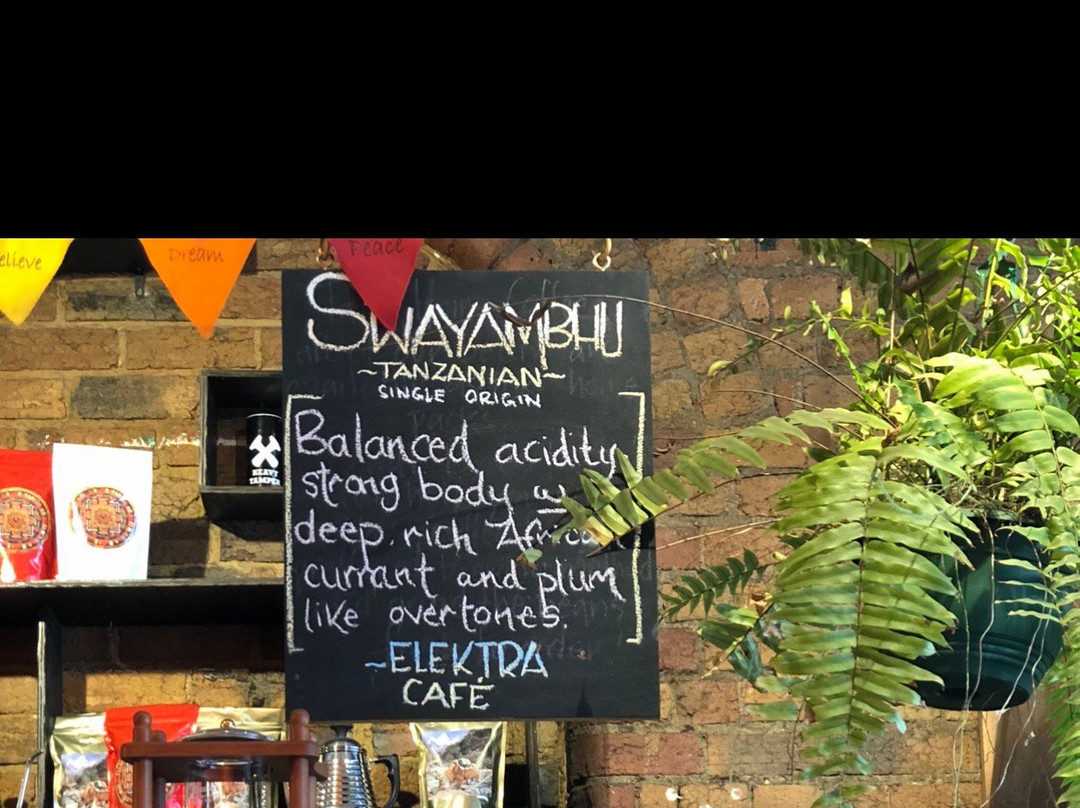 elieve
Dream
Peace
SWAYAMBHU
~TANZANIAN~
SINGLE ORIGIN
Balanced acidity
strong body
deep, rich
currant and plum
like overtones.
~ELEKTRA
CAFÉ
HEAVY
TAMPER